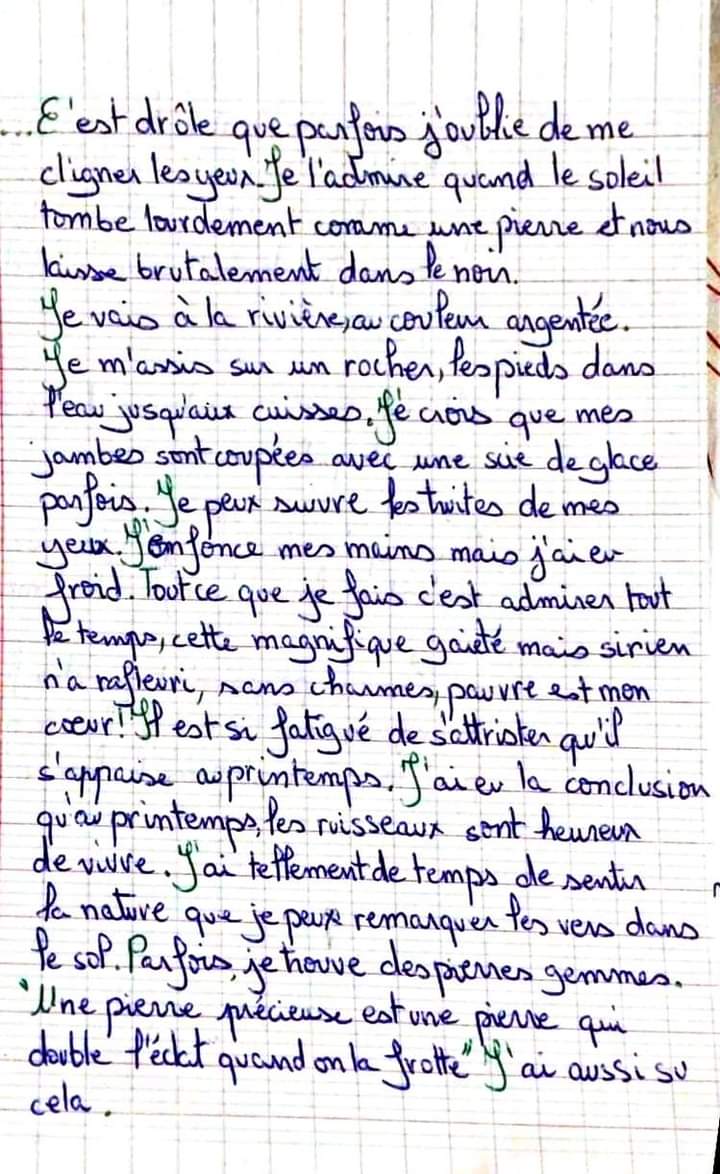 ...C'est drôle que parfois j'oublie de me
cligner les yeux. Je l'admire quand le soleil
tombe lourdement comme une pierre et nous
laisse brutalement dans le noir.
Je vais à la rivière, au couleur argentée.
Je m'assis sur un rocher, les pieds dans
l'eau jusqu'aux cuisses. Je crois que mes
jambes sont coupées avec une scie de glace
parfois. Je peux suivre les truites de mes
yeux. J'enfonce mes mains mais j'ai eu
froid. Tout ce que je fais c'est admirer tout
le temps, cette magnifique gaieté mais si rien
n'a rafleuri, sans charmes, pauvre est mon
cœur! Il est si fatigué de s'attrister qu'il
s'appaise au printemps. J'ai eu la conclusion
qu'au printemps, les ruisseaux sont heureux
de vivre. J'ai tellement de temps de sentir
la nature que je peux remarquer les vers dans
le sol. Parfois, je trouve des pierres gemmes.
"Une pierre précieuse est une pierre qui
double l'éclat quand on la frotte" J'ai aussi su
cela.